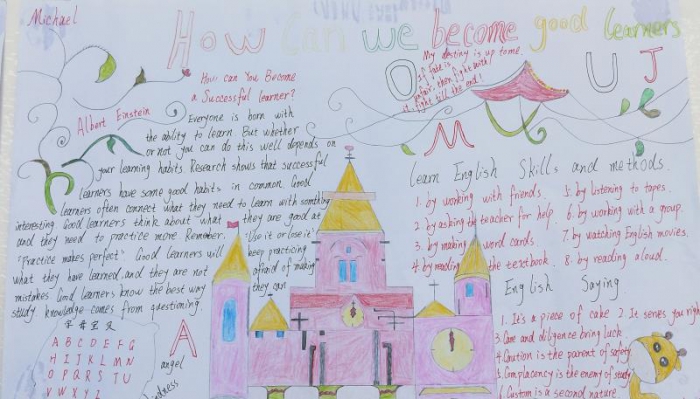 Michael
How Can we become good learners
My destiny is up to me.
If fate is
unfair, then fight with
it, fight till the end!
O
U
J
M
How can You Become
a Successful learner?
Albert Einstein
Everyone is born with
the ability to learn. But whether
or not you can do this well depends on
your learning habits Research shows that successful
learners have some good habits in common. Good
learners often connect what they need to learn with something
interesting Good learners think about what they are good at
and they need to practice more. Remember, "Use it or lose it"
"Practice makes perfect" Good learners will keep practicing
what they have learned, and they are not afraid of making
mistakes. Good learners know the best way they can
study knowledge comes from questioning.
A B C D E F G
H I J K L M N
O P Q R S T U
V W X Y Z
A
angel
Learn English Skills and methods.
1. by working with friends. 5. by listening to tapes.
2. by asking the teacher for help. 6. by working with a group.
3. by making word cards. 7. by watching English movies.
4. by reading the textbook. 8. by reading aloud.
English Saying
1. It's a piece of cake 2. It serves you right
3. Care and diligence bring luck
4. Caution is the parent of safety.
5. Complacency is the enemy of study
6. Custom is a second nature.